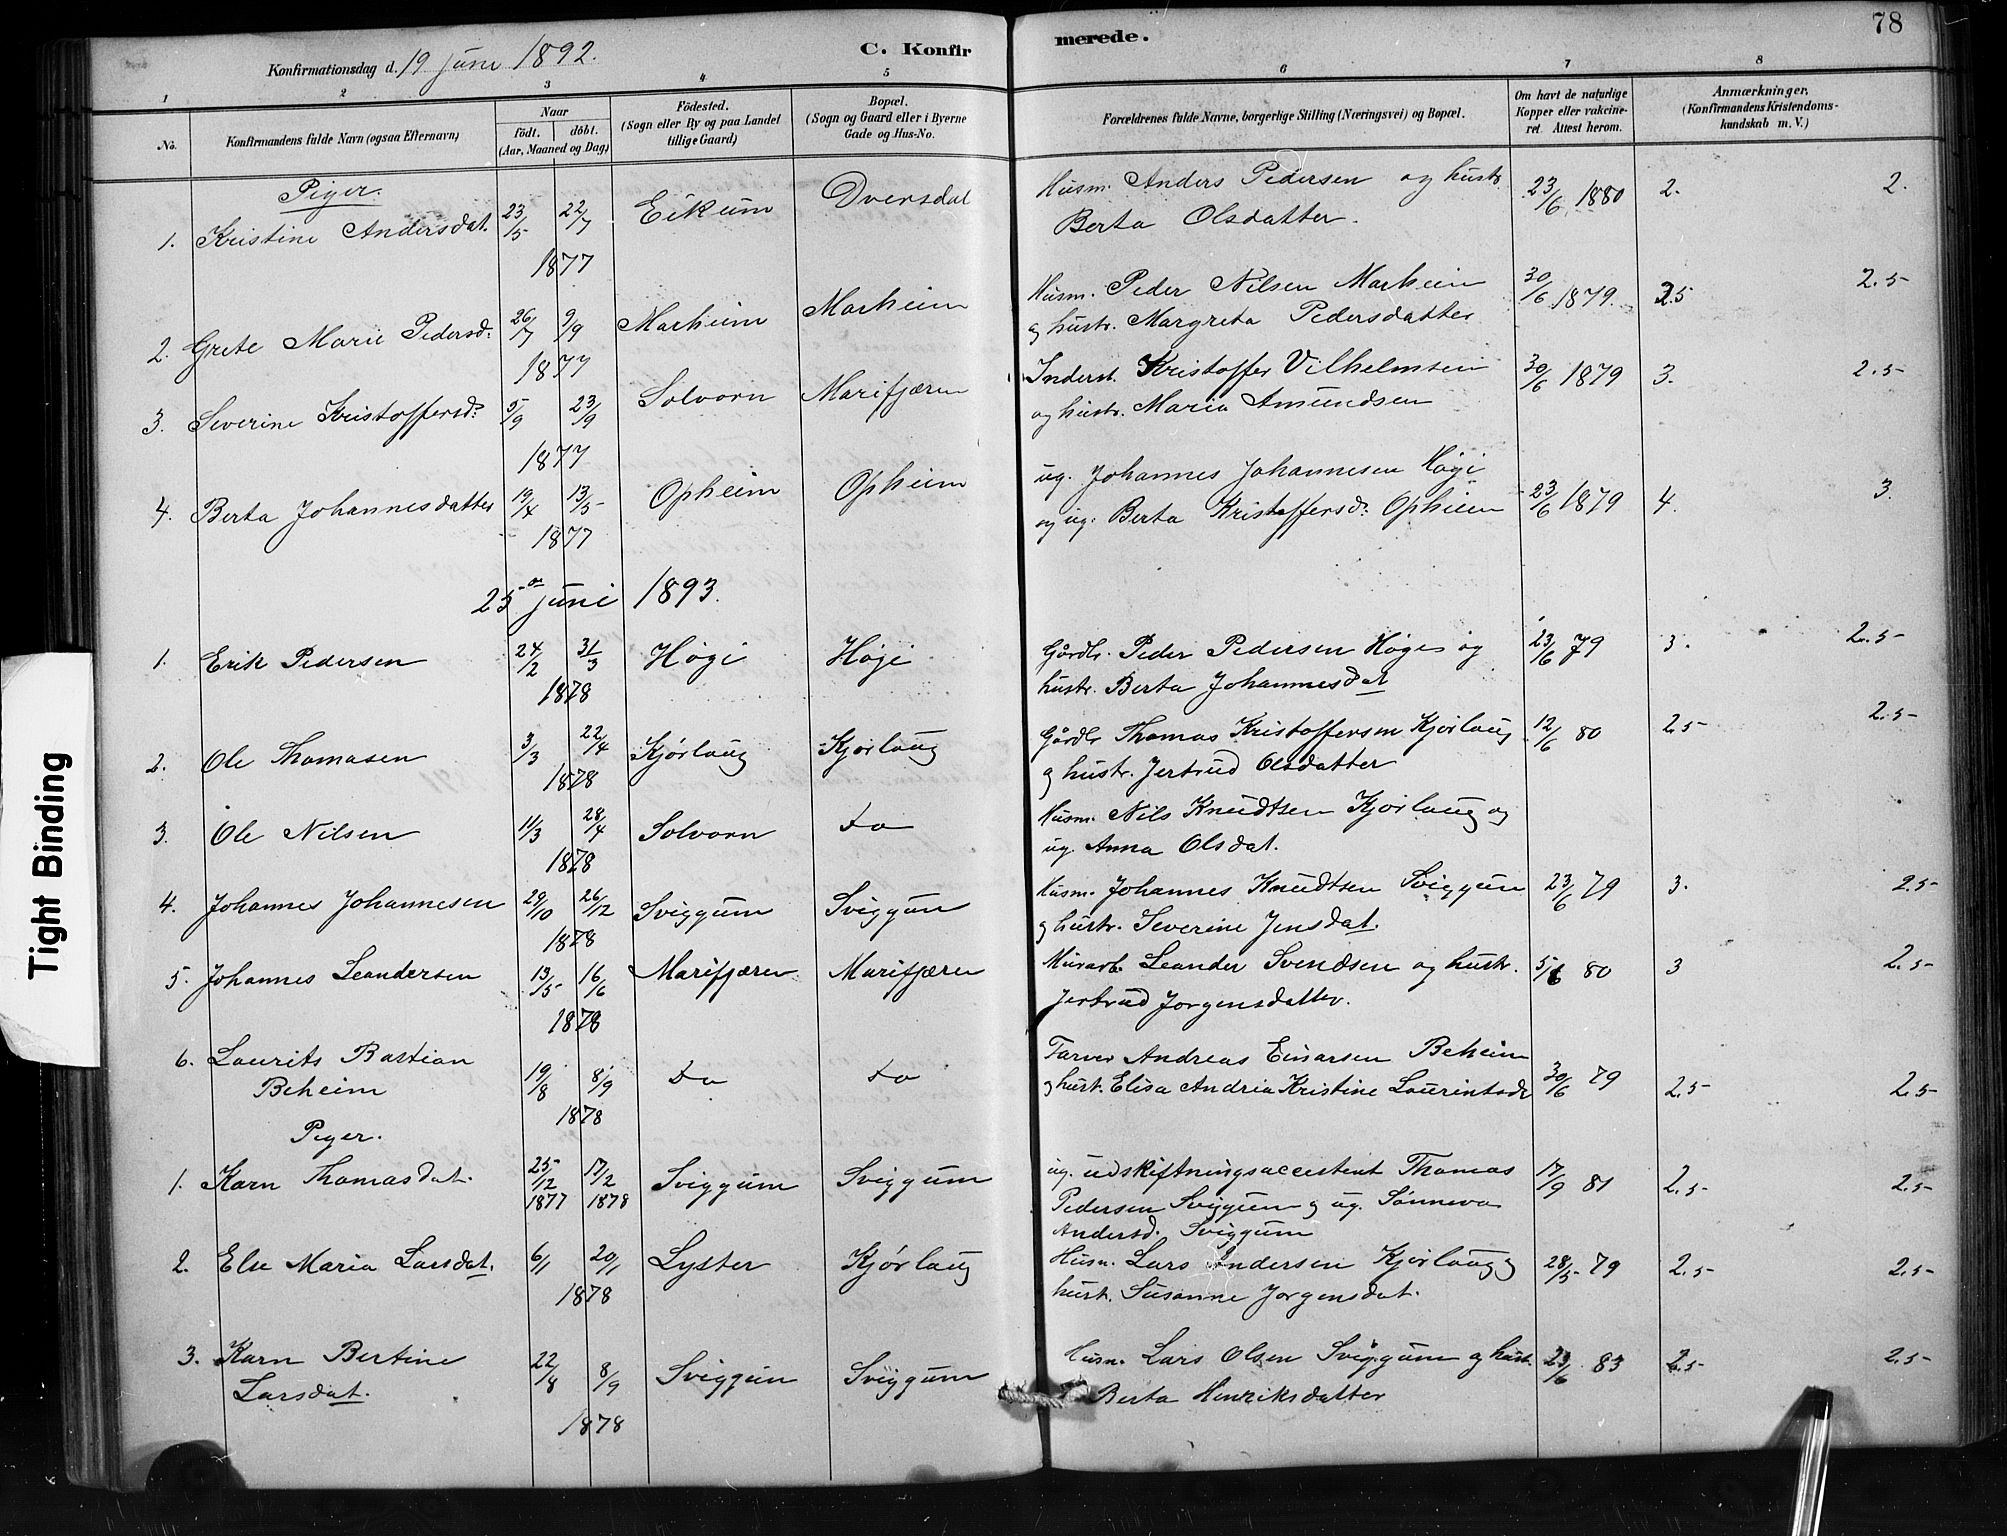 78
Konfirmationsdag d. 19 juni 1892.
C. Konfir merede.
1 2 3 4 5 6 7 8
No.
Konfirmandens fulde Navn (ogsaa Efternavn)
Naar
födt. döbt.
(Aar, Maaned og Dag)
Födested.
(Sogn eller By og paa Landet
tillige Gaard)
Bopæl.
(Sogn og Gaard eller i Byerne
Gade og Hus-No.
Forældrenes fulde Navne, borgerlige Stilling (Næringsvei) og Bopæl.
Om havt de naturlige
Kopper eller vakcine-
ret. Attest herom.
Anmærkninger,
(Konfirmandens Kristendoms-
kundskab m. V.)
Piger.
1. Kristine Andersdat. 23/5 22/7 Eikum Dversdal Husm. Anders Pedersen og hustr. 23/6 1880 2. 2.
1877 Berta Olsdatter.
2. Grete Marie Pedersd: 26/7 9/9 Marheim Marheim Husm. Peder Nilsen Marheim 30/6 1879. 2.5 2.5
1877 og hustr. Margreta Pedersdatter
3. Severine Kristoffersd: 5/9 23/9 Solvorn Marifjæren Inderst. Kristoffer Vilhelmsen 30/6 1879 3. 2.5
1877 og hustr. Maria Amundsen
4. Berta Johannesdatter 19/4 13/5 Opheim Opheim ug. Johannes Johannesen Høgi 23/6 1879 4. 3.
1877 og ug. Berta Kristoffersd: Opheim
25de juni 1893.
1. Erik Pedersen 24/2 31/3 Høgi Høgi Gårdbr. Peder Pedersen Høgi og 23/6 79 3. 2.5
1878 hustr. Berta Johannesdat
2. Ole Thomasen 3/3 22/4 Kjørlaug Kjørlaug Gårdbr Thomas Kristoffersen Kjørlaug 12/6 80 2.5 2.5
1878 og hustr. Jertrud Olsdatter
3. Ole Nilsen 11/3 28/4 Solvorn do Husm. Nils Knudtsen Kjørlaug og
1878 ug. Anna Olsdat.
4. Johannes Johannesen 29/10 26/12 Sviggum Sviggum Husm. Johannes Knudtsen Sviggum 23/6 79 3. 2.5
1878 og hustr. Severine Jensdat.
5. Johannes Leandersen 13/5 16/6 Marifjæren Marifjæren Murarb. Leander Svendsen og hustr. 5/6 80 3 2.5
1878 Jertrud Jørgensdatter.
6. Laurits Bastian Farver Andreas Einarsen Beheim
Beheim 19/8 8/9 do do og hust. Elisa Andria Kristine Laurintsdr 30/6 79 2.5 2.5
1878
Piger.
1. Karn Thomasdat. 25/12 17/2 Sviggum Sviggum ug. udskiftningsaccestent Thomas 17/9 81 2.5 2.5
1877 1878 Pedersen Sviggum og ug. Sønneva
Andersd. Sviggum
2. Else Maria Larsdat. 6/1 20/1 Lyster Kjørlaug Husm. Lars Andersen Kjørlaug og 28/5 79 2.5 2.5
1878 hust. Susanne Jørgensdat.
3. Karn Bertine 22/8 8/9 Sviggum Sviggum Husm. Lars Olsen Sviggum og hust. 23/6 83 2.5 2.5
Larsdat. Berta Henriksdatter
1878
Tight Binding